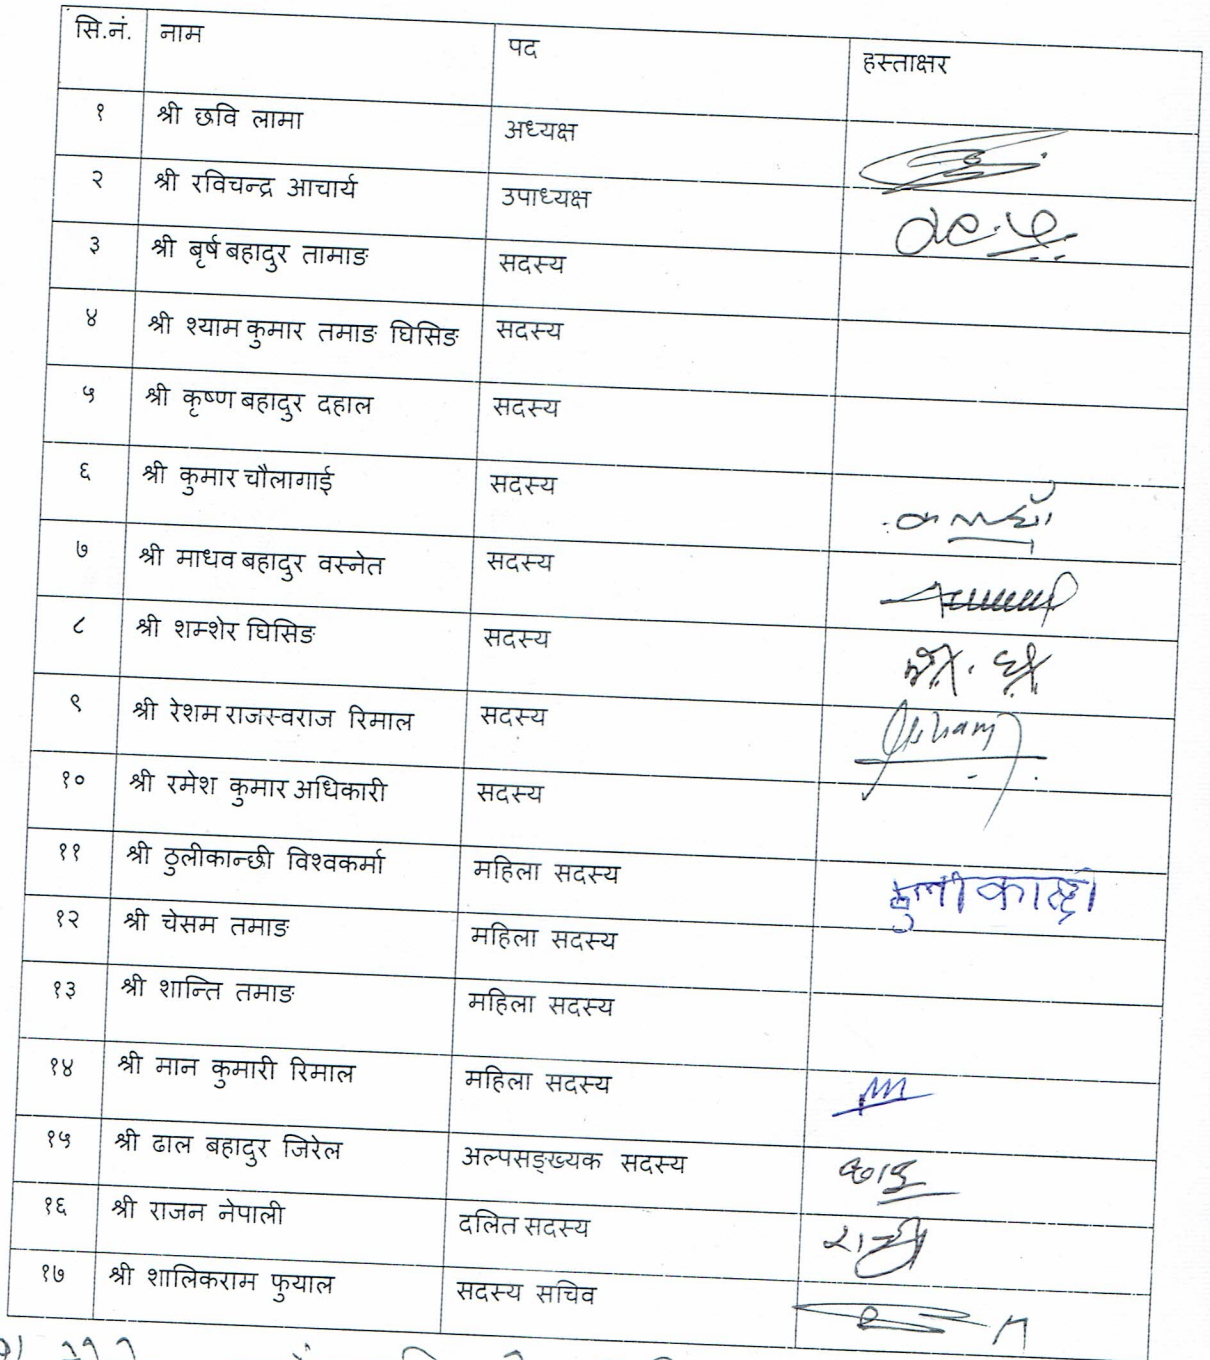 सि.नं. नाम पद हस्ताक्षर
१ श्री छवि लामा अध्यक्ष
२ श्री रविचन्द्र आचार्य उपाध्यक्ष
३ श्री बृर्ष बहादुर तामाङ सदस्य
४ श्री श्याम कुमार तमाङ घिसिङ सदस्य
५ श्री कृष्ण बहादुर दहाल सदस्य
६ श्री कुमार चौलागाई सदस्य
७ श्री माधव बहादुर वस्नेत सदस्य
८ श्री शम्शेर घिसिङ सदस्य
९ श्री रेशम राजस्वराज रिमाल सदस्य
१० श्री रमेश कुमार अधिकारी सदस्य
११ श्री ठुलीकान्छी विश्वकर्मा महिला सदस्य
१२ श्री चेसम तमाङ महिला सदस्य
१३ श्री शान्ति तमाङ महिला सदस्य
१४ श्री मान कुमारी रिमाल महिला सदस्य
१५ श्री ढाल बहादुर जिरेल अल्पसङ्ख्यक सदस्य
१६ श्री राजन नेपाली दलित सदस्य
१७ श्री शालिकराम फुयाल सदस्य सचिव